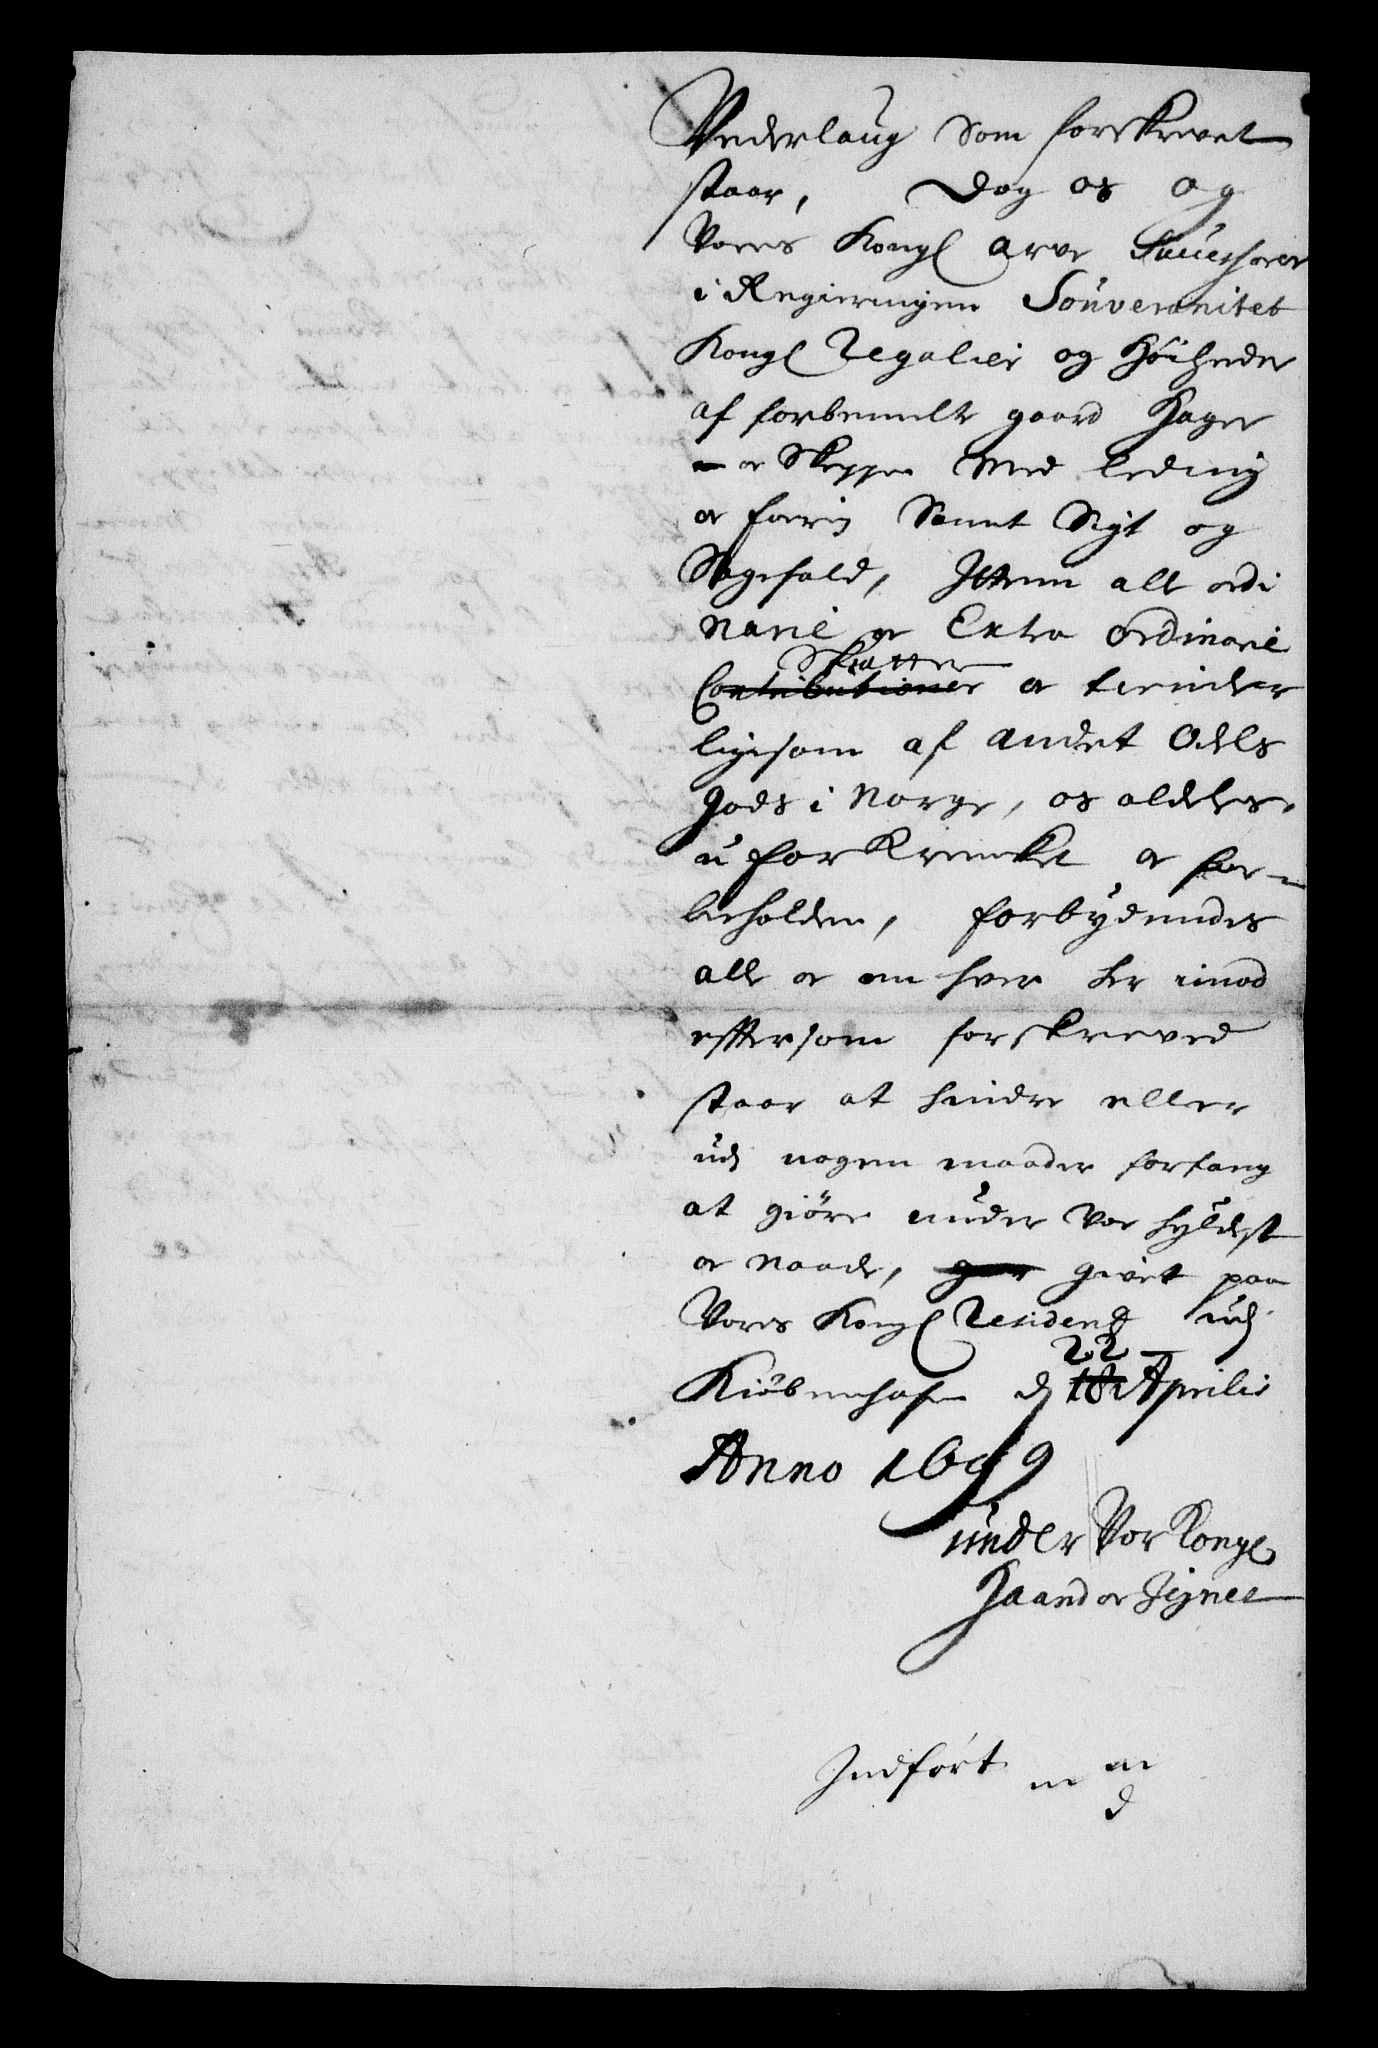 Vederlaug Som forskrevet
staar, dog os og
Vores Kongl arve Successorer
i Regieringen Souverenitet
Kongl Regalier og Høiheder
af forbemelte gaard Hager
Med leding
Sampt Sigt og
Sagefald, Ittem alle ordi
narie og Extra ordinarie
Skatter
Contributioner og tiender
ligesom af andet Odels
gods i Norge, os aldeles
u forkrencket og for-
beholden, forbydendes
alle og en hver her imod
eftersom forskreved
staar at hindre eller
udj nogen maader forfang
at giøre under Vor hyldest
og Naade, givet paa
Vores Kongl Residentz udj
22
Kiøbenhafn d 18 Aprilis
Anno 1699
under Vor Kongl
Haand og Signet
Indført